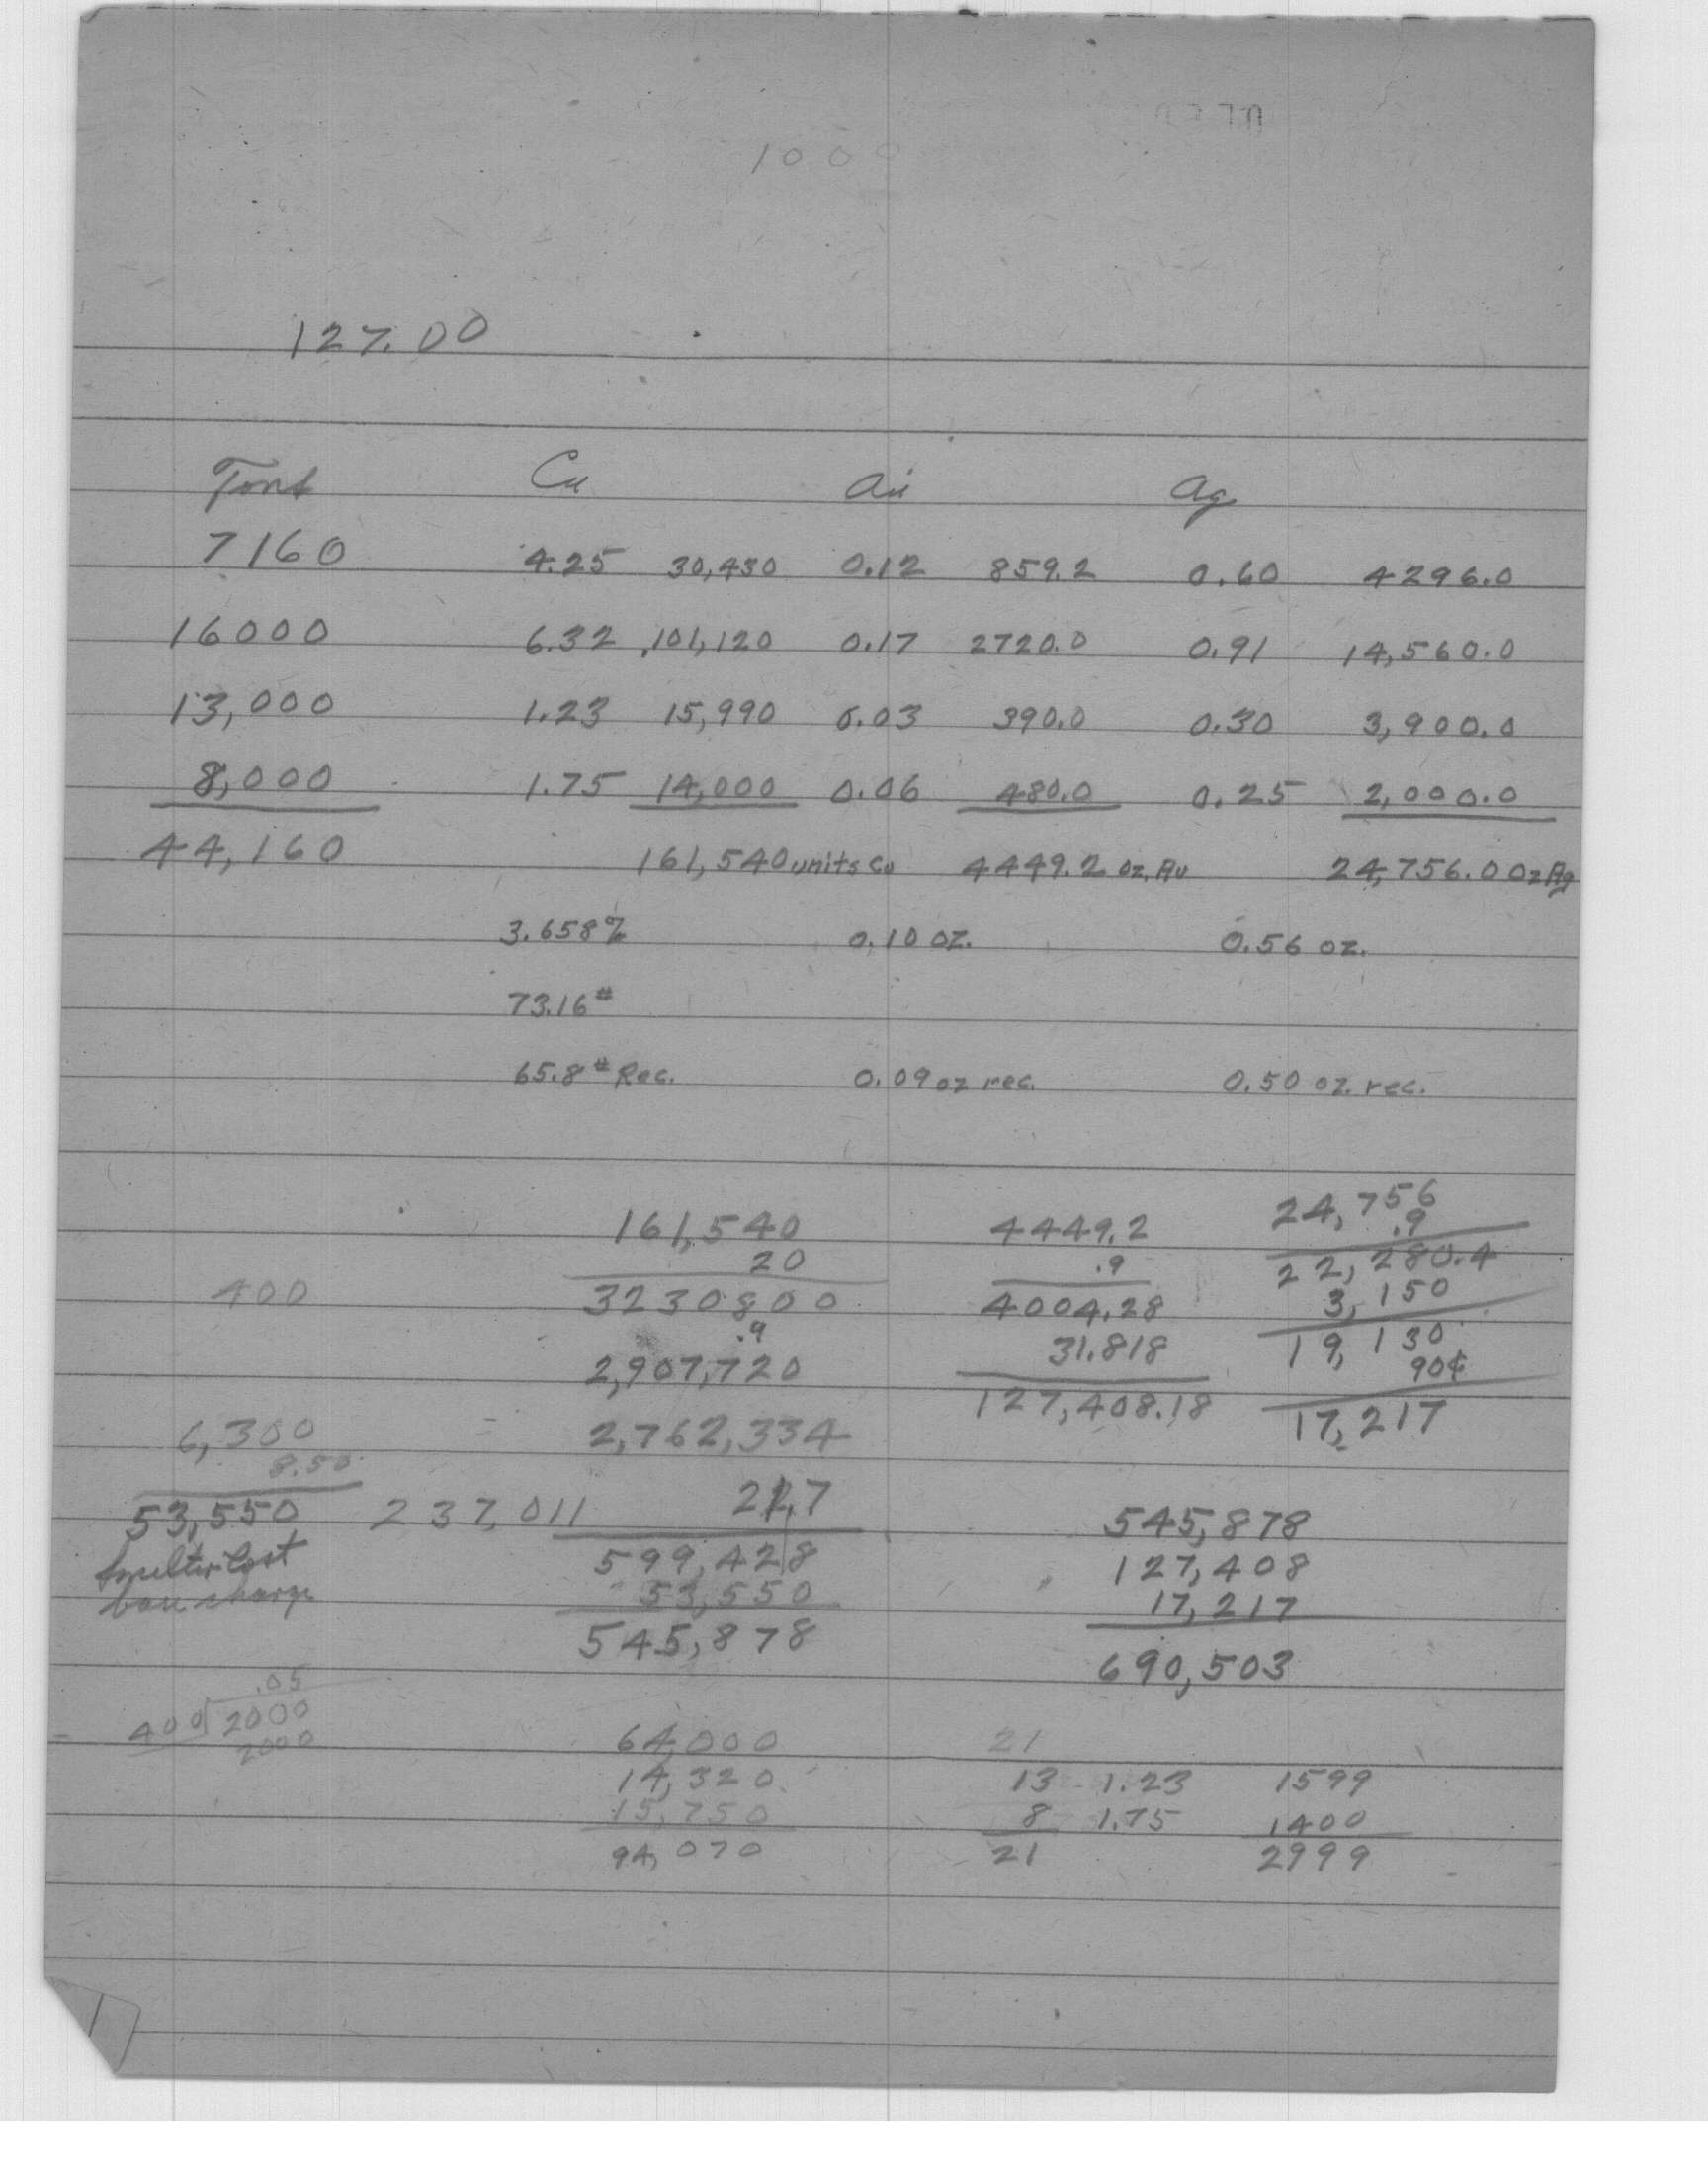 1000
127.00
Tons Cu Au Ag
7160 4.25 30,430 0.12 859.2 0.60 4296.0
16000 6.32 101,120 0.17 2720.0 0.91 14,560.0
13,000 1.23 15,990 0.03 390.0 0.30 3,900.0
8,000 1.75 14,000 0.06 480.0 0.25 2,000.0
44,160 161,540 units Cu 4449.2 oz. Au 24,756.0 Oz Ag
3.658% 0.10 oz. 0.56 oz.
73.16#
65.8# Rec. 0.09 oz rec. 0.50 oz. rec.
161,540 4449.2 24,756
20 .9 .9
400 3230800 4004.28 22,280.4
.9 31.818 3,150
2,907,720 127,408.18 19,130
90¢
6,300 2,762,334 17,217
8.50
53,550 237,011 21.7 545,878
Smelter Cost 599,428 127,408
base charge 53,550 17,217
545,878 690,503
.05
400 2000
2000
64,000 21
14,320 13 1.23 1599
15,750 8 1.75 1400
94,070 21 2999